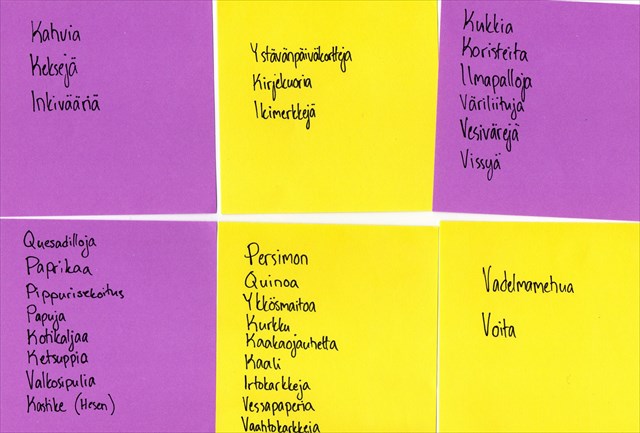 Kahvia
Keksejä
Inkivääriä
Ystävänpäiväkortteja
Kirjekuoria
Ikimerkkejä
Kukkia
Koristeita
Ilmapalloja
Väriliituja
Vesivärejä
Vissyä
Quesadilloja
Paprikaa
Pippurisekoitus
Papuja
Kotikaljaa
Ketsuppia
Valkosipulia
Kastike (Hesen)
Persimon
Quinoa
Ykkösmaitoa
Kurkku
Kaakaojauhetta
Kaali
Irtokarkkeja
Vessapaperia
Vaahtokarkkeja
Vadelmamehua
Voita